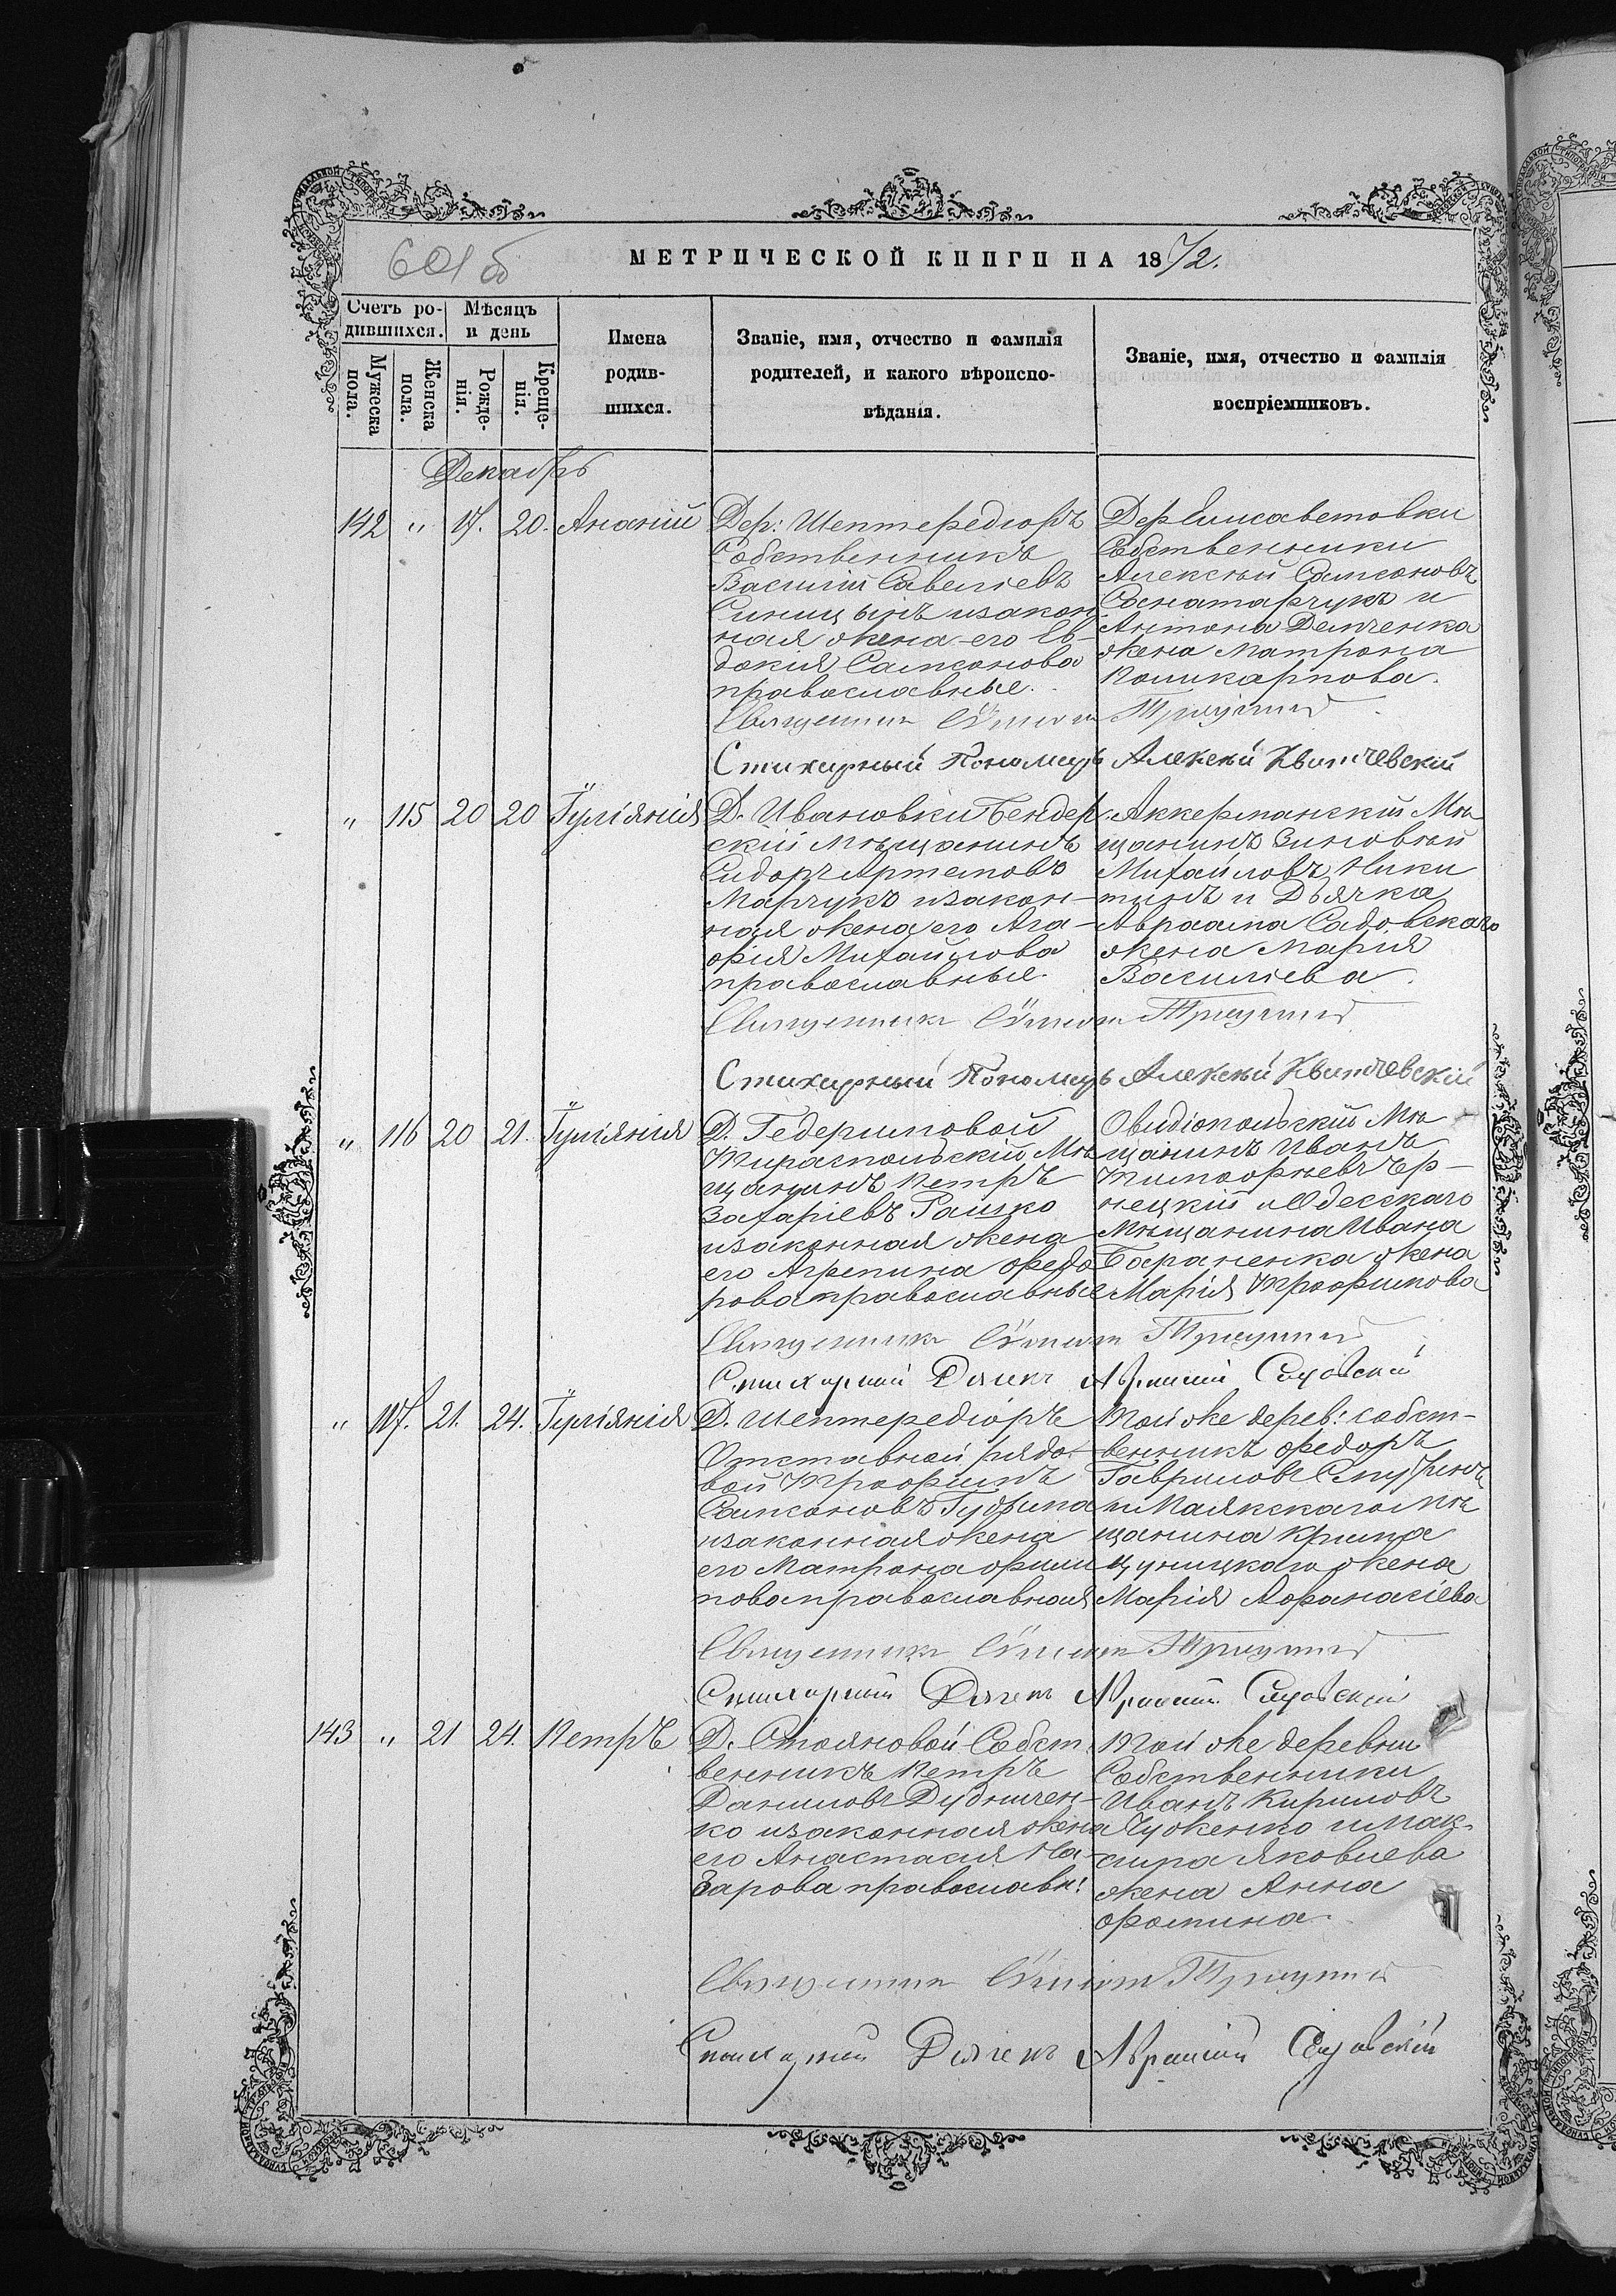 601 об
МЕТРИЧЕСКОЙ КНИГИ НА 1872.
Счетъ родившихся.
Мѣсяцъ и день
Имена родившихся.
Званіе, имя, отчество и фамилія родителей, и какого вѣроисповѣданія.
Званіе, имя, отчество и фамилія воспріемниковъ.
Мужеска пола.
Женска пола.
Рожденія.
Крещенія.
Декабрь
142 " 17. 20. Ананій
Дер: Шептередіоръ
Собственникъ
Василій Савельевъ
Синицынъ и закон-
ная жена его Ев-
докія Самсонова
православные.
Дер Елисаветовки
Собственники
Алексѣй Самсоновъ
Соснатарчукъ и
Антона Демченка
жена Матрона
Поликарпова.
Священникъ
Стихарный Пономарь Алексѣй Квитчевскій
" 115 20 20 Іуліянія
Д. Ивановки Бендер-
скій Мѣщанинъ
Сидоръ Артемовъ
Марчукъ и закон-
ная жена его Ага-
фія Михайлова
православные.
Аккерманскій Мѣ-
щанинъ Зиновій
Михайловъ Ники
тинъ и Дьячка
Авраама Садовскаго
жена Марія
Васильева.
Священникъ
Стихарный Пономарь Алексѣй Квитчевскій
" 116 20 21. Іуліянія
Д. Гедеримовой
Тираспольскій Мѣ
щанинъ Петръ
Захаріевъ Рашко
и законная жена
его Агрепина Федо
рова православные
Овидіопольскій Мѣ
щанинъ Иванъ
Тимофѣевъ Чер-
нецкій и Одесскаго
Мѣщанина Ивана
Бараненка жена
Марія Трофимова
Священникъ
Стихарный Дячекъ Авраамій Садовскій
" 117. 21. 24. Іуліянія
Д. Шептередіоръ
Отставной рядо-
вой Трофимъ
Самсоновъ Гудыма
и законная жена
его Матрона Фили
пова православная
Той же дерев: собст-
венникъ Федоръ
Гавриловъ
и Маякскаго Мѣ
щанина Крима
жена
Марія Афанасіева
Священникъ
Стихарный Дячекъ Авраамій Садовскій
143 " 21 24. Петръ
Д. Стояновой Собст
венникъ Петръ
Даниловъ Дудничен-
ко и законная жена
его Анастасія На-
зарова православн:
Той же деревни
Собственники
Иванъ Кириловъ
Чуженко и Мак-
сима Яковлева
жена Анна
Фомина.
Священникъ
Стихарный Дячекъ Авраамій Садовскій